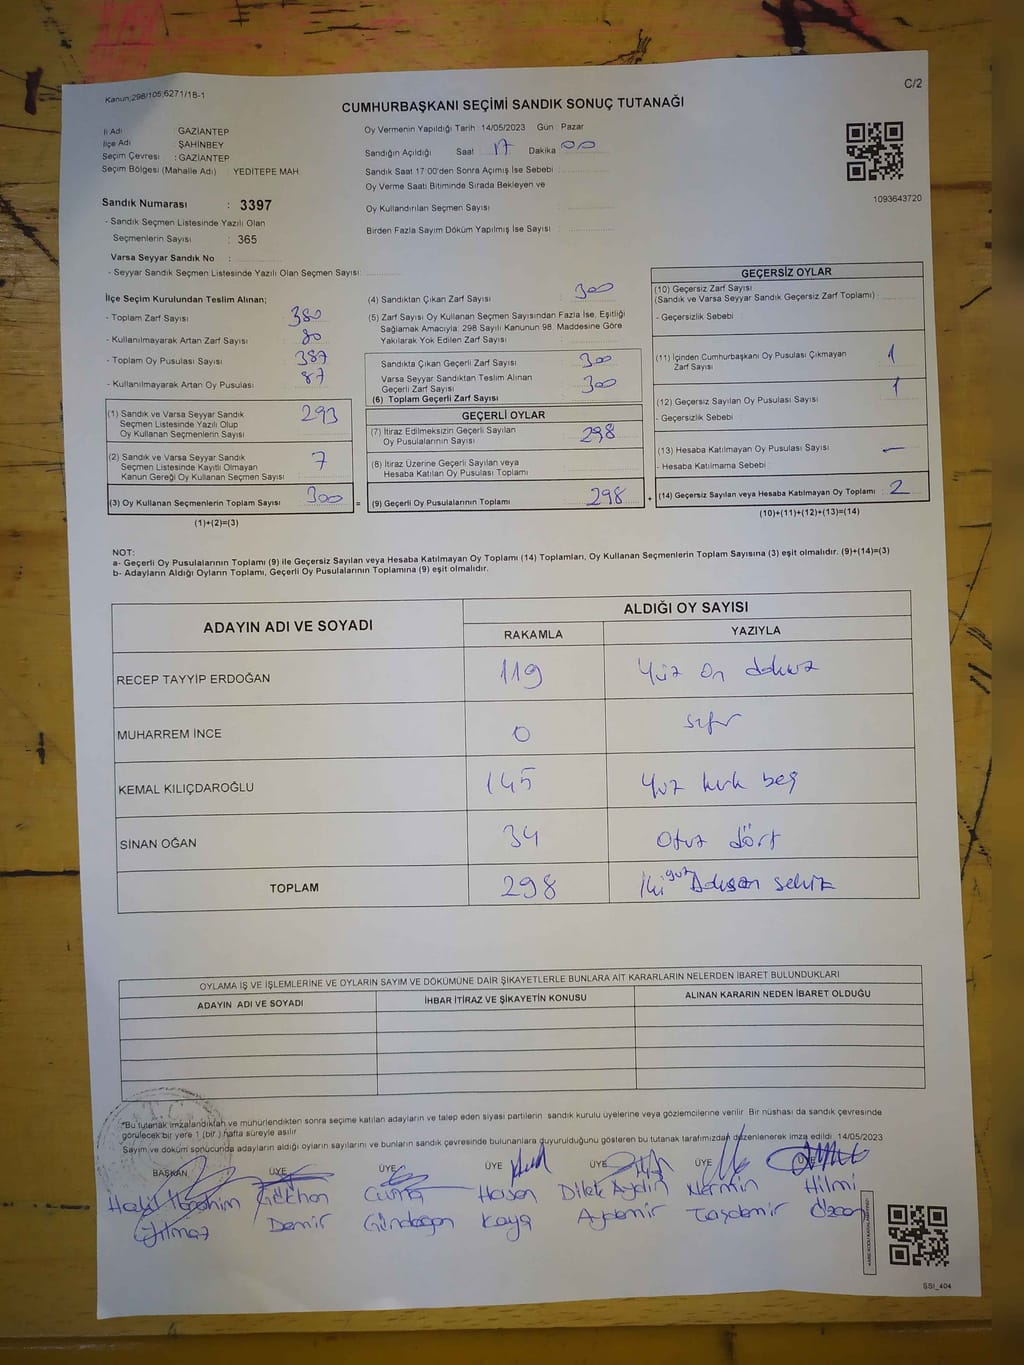 Kanun;298/105;6271/18-1
C/2
CUMHURBAŞKANI SEÇİMİ SANDIK SONUÇ TUTANAĞI
İl Adı : GAZİANTEP
İlçe Adı : ŞAHİNBEY
Seçim Çevresi : GAZİANTEP
Seçim Bölgesi (Mahalle Adı) : YEDİTEPE MAH.
Sandık Numarası : 3397
- Sandık Seçmen Listesinde Yazılı Olan
Seçmenlerin Sayısı : 365
Varsa Seyyar Sandık No :
- Seyyar Sandık Seçmen Listesinde Yazılı Olan Seçmen Sayısı:
Oy Vermenin Yapıldığı Tarih 14/05/2023 Gün : Pazar
Sandığın Açıldığı Saat 17 Dakika 00
Sandık Saat 17:00'den Sonra Açımış İse Sebebi
Oy Verme Saati Bitiminde Sırada Bekleyen ve
Oy Kullandırılan Seçmen Sayısı
Birden Fazla Sayım Döküm Yapılmış İse Sayısı :
1093643720
İlçe Seçim Kurulundan Teslim Alınan;
- Toplam Zarf Sayısı 380
- Kullanılmayarak Artan Zarf Sayısı 80
- Toplam Oy Pusulası Sayısı 387
- Kullanılmayarak Artan Oy Pusulası 87
(1) Sandık ve Varsa Seyyar Sandık 293
Seçmen Listesinde Yazılı Olup
Oy Kullanan Seçmenlerin Sayısı
(2) Sandık ve Varsa Seyyar Sandık 7
Seçmen Listesinde Kayıtlı Olmayan
Kanun Gereği Oy Kullanan Seçmen Sayısı :
(3) Oy Kullanan Seçmenlerin Toplam Sayısı 300 =
(1)+(2)=(3)
(4) Sandıktan Çıkan Zarf Sayısı : 300
(5) Zarf Sayısı Oy Kullanan Seçmen Sayısından Fazla İse, Eşitliği
Sağlamak Amacıyla; 298 Sayılı Kanunun 98. Maddesine Göre
Yakılarak Yok Edilen Zarf Sayısı
Sandıkta Çıkan Geçerli Zarf Sayısı : 300
Varsa Seyyar Sandıktan Teslim Alınan
Geçerli Zarf Sayısı : 300
(6) Toplam Geçerli Zarf Sayısı
GEÇERLİ OYLAR
(7) İtiraz Edilmeksizin Geçerli Sayılan
Oy Pusulalarının Sayısı : 298
(8) İtiraz Üzerine Geçerli Sayılan veya
Hesaba Katılan Oy Pusulası Toplamı
(9) Geçerli Oy Pusulalarının Toplamı 298 +
GEÇERSİZ OYLAR
(10) Geçersiz Zarf Sayısı
(Sandık ve Varsa Seyyar Sandık Geçersiz Zarf Toplamı)
- Geçersizlik Sebebi
(11) İçinden Cumhurbaşkanı Oy Pusulası Çıkmayan 1
Zarf Sayısı
(12) Geçersiz Sayılan Oy Pusulası Sayısı 1
- Geçersizlik Sebebi
(13) Hesaba Katılmayan Oy Pusulası Sayısı —
- Hesaba Katılmama Sebebi
(14) Geçersiz Sayılan veya Hesaba Katılmayan Oy Toplamı : 2
(10)+(11)+(12)+(13)=(14)
NOT:
a- Geçerli Oy Pusulalarının Toplamı (9) ile Geçersiz Sayılan veya Hesaba Katılmayan Oy Toplamı (14) Toplamları, Oy Kullanan Seçmenlerin Toplam Sayısına (3) eşit olmalıdır. (9)+(14)=(3)
b- Adayların Aldığı Oyların Toplamı, Geçerli Oy Pusulalarının Toplamına (9) eşit olmalıdır.
ADAYIN ADI VE SOYADI ALDIĞI OY SAYISI
RAKAMLA YAZIYLA
RECEP TAYYİP ERDOĞAN 119 Yüz on dokuz
MUHARREM İNCE 0 sıfır
KEMAL KILIÇDAROĞLU 145 Yüz kırk beş
SİNAN OĞAN 34 Otuz dört
TOPLAM 298 İki yüz doksan sekiz
OYLAMA İŞ VE İŞLEMLERİNE VE OYLARIN SAYIM VE DÖKÜMÜNE DAİR ŞİKAYETLERLE BUNLARA AİT KARARLARIN NELERDEN İBARET BULUNDUKLARI
ADAYIN ADI VE SOYADI İHBAR İTİRAZ VE ŞİKAYETİN KONUSU ALINAN KARARIN NEDEN İBARET OLDUĞU
T.C.
*Bu tutanak imzalandıktan ve mühürlendikten sonra seçime katılan adayların ve talep eden siyasi partilerin sandık kurulu üyelerine veya gözlemcilerine verilir. Bir nüshası da sandık çevresinde
görülecek bir yere 1 (bir ) hafta süreyle asılır.
Sayım ve döküm sonucunda adayların aldığı oyların sayılarını ve bunların sandık çevresinde bulunanlara duyurulduğunu gösteren bu tutanak tarafımızdan düzenlenerek imza edildi. 14/05/2023
BAŞKAN ÜYE ÜYE ÜYE ÜYE ÜYE ÜYE
Halil İbrahim Gökhan Cuma Hasan Dilek Aydın Nermin Hilmi
Yılmaz Demir Gündoğan Kaya Aydemir Taşdemir Özcan
SSİ_404